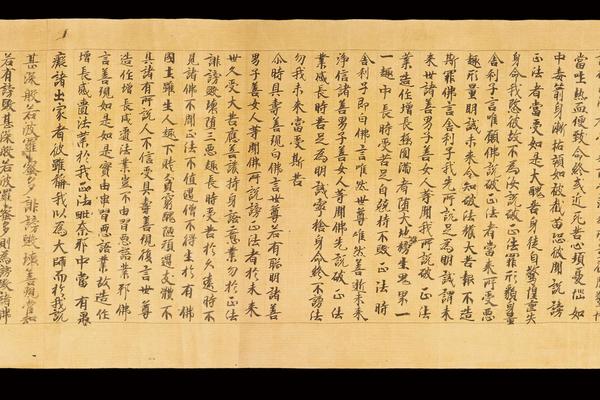 當吐熱血便致命終或近死苦心頓憂惱如
中毒箭身漸枯顇如被截苗恐彼聞說謗
正法者當受如是大醜苦身徒自驚惶喪失
身命我愍彼故不為汝說破正法罪形貌身量
舍利子言唯願佛說破正法者當來所受惡
趣形量明誡未來令知破法獲大苦報不造
斯罪佛言舍利子我先所說足為明誡謂未
來世諸善男子善女人等聞我所說破正法
業造作增長極圓滿者墮大地獄傍生鬼界一
一趣中長時受苦足自兢持不毀正法時
舍利子即白佛言唯然世尊唯然善逝未來
淨信諸善男子善女人等聞佛先說破正法
業感長時苦足為明誡寧捨身命終不謗法
勿我未來當受斯苦
爾時具壽善現白佛言世尊若有聰明諸善
男子善女人等聞佛所說謗正法者於未來
世久受大苦應善護持身語意業勿於正法
誹謗毀壞墮三惡趣長時受苦於久遠時不
見諸佛不聞正法不值遇僧不得生於有佛
國土雖生人趣下賤貧窮醜陋頑愚支體不
具諸有所說人不信受具壽善現復言世尊
造作增長感匱法業豈不由習惡語業耶佛
言善現如是如是實由串習惡語業故造作
增長感匱法業於我正法毗奈耶中當有愚
癡諸出家者彼雖稱我以為大師而於我說
甚深般若波羅蜜多誹謗毀壞善現當知
若有謗毀甚深般若波羅蜜多則為謗毀諸佛